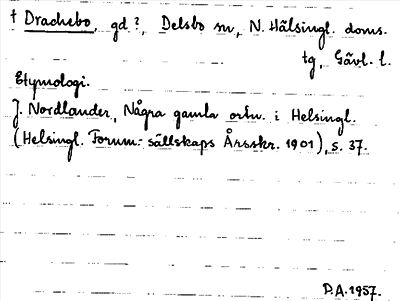 † Drachebo, gd?, Delsbo sn, N. Hälsingl. doms.
tg, Gävl. l.
Etymologi.
J. Nordlander, Några gamla ortn. i Helsingl.
(Helsingl. Fornm:- sällskaps Årsskr. 1901), s. 37.
D.A. 1957.